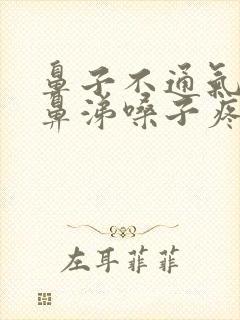 鼻子不通氣
鼻涕嗓子疼
左耳菲菲